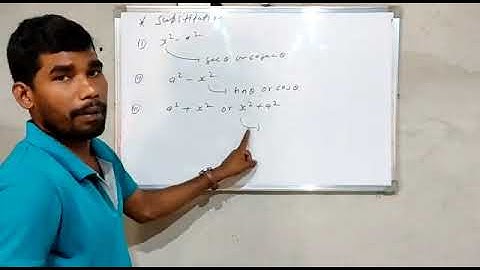 * Substitution
(i) x² - a²
secθ or cosecθ
(ii) a² - x²
sinθ or cosθ
(iii) a² + x² or x² + a²